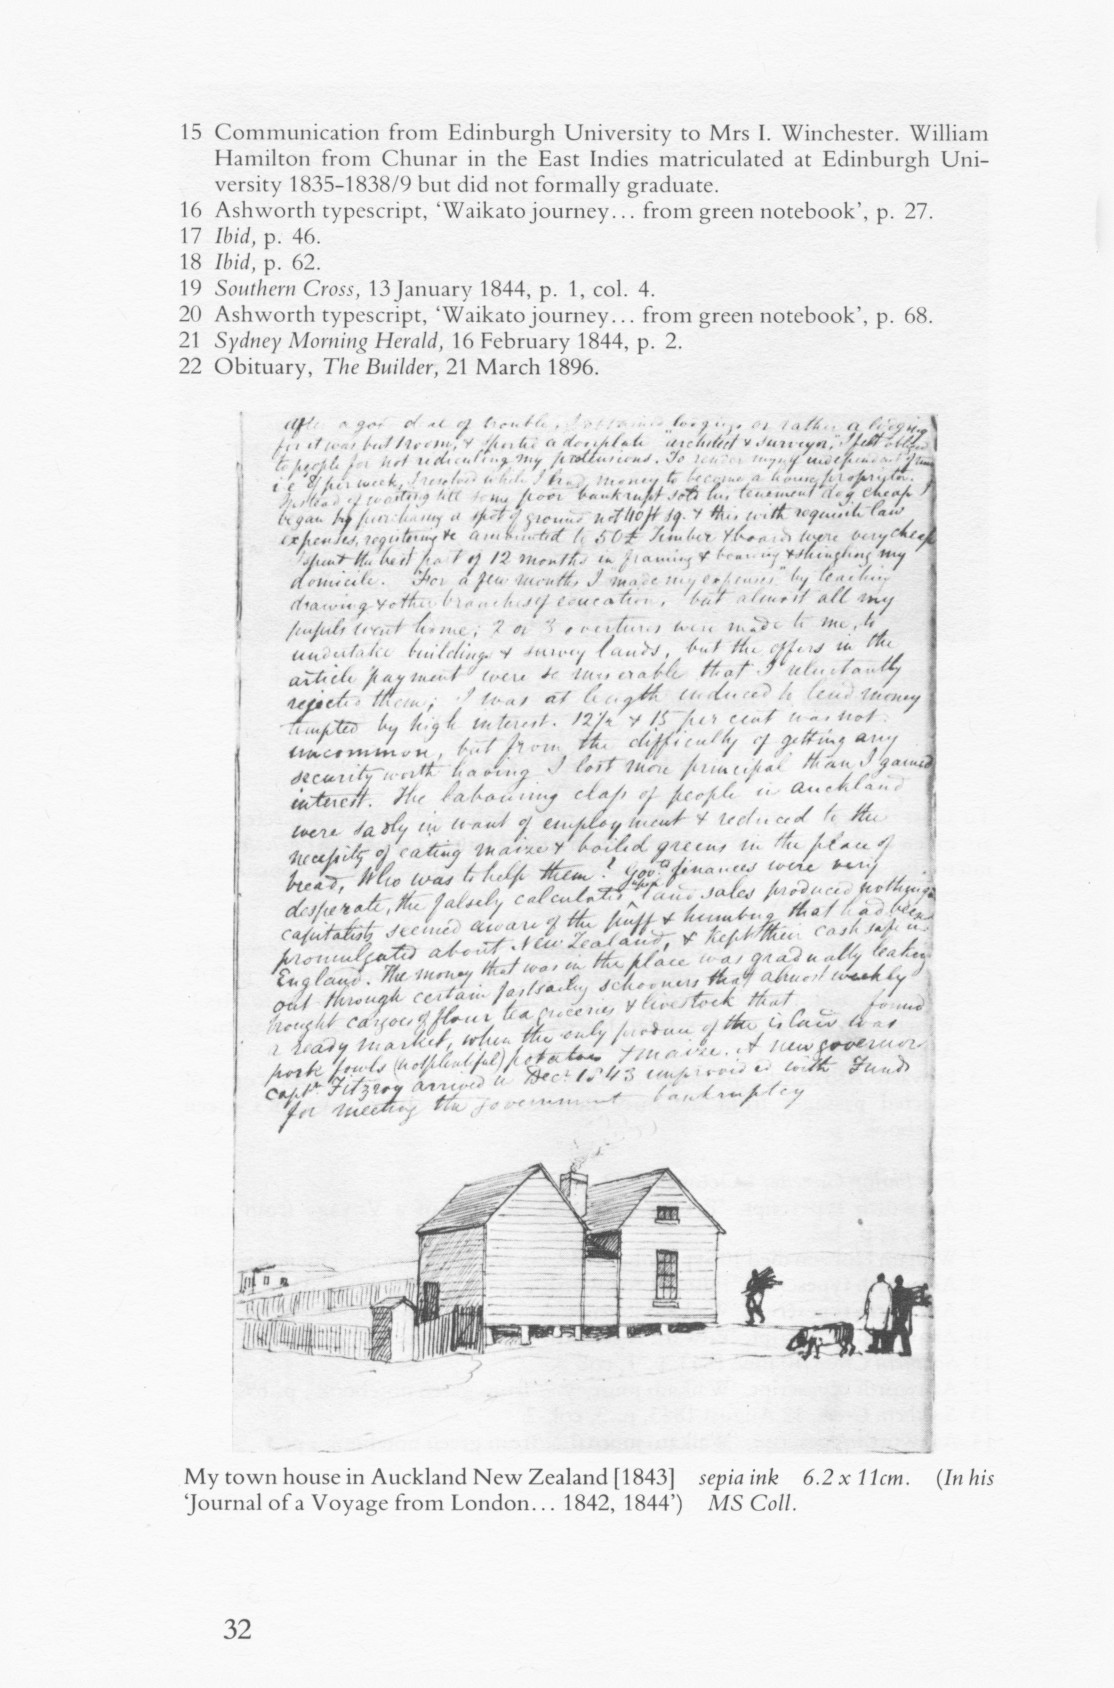 15 Communication from Edinburgh University to Mrs I. Winchester. William
Hamilton from Chunar in the East Indies matriculated at Edinburgh Uni-
versity 1835–1838/9 but did not formally graduate.
16 Ashworth typescript, ‘Waikato journey... from green notebook’, p. 27.
17 Ibid, p. 46.
18 Ibid, p. 62.
19 Southern Cross, 13 January 1844, p. 1, col. 4.
20 Ashworth typescript, ‘Waikato journey... from green notebook’, p. 68.
21 Sydney Morning Herald, 16 February 1844, p. 2.
22 Obituary, The Builder, 21 March 1896.
after a good deal of trouble, I obtained lodgings or rather a lodging
for it was but 1 room, & sported a doorplate "architect & surveyor," I felt obliged
to people for not ridiculing my pretensions. To render myself independent of
i.e. 8/ per week, I resolved while I had money to become a house proprietor.
Instead of waiting till some poor bankrupt sold his tenement dog cheap I
began by purchasing a spot of ground not 40 ft sq. & this with requisite law
expenses, registering &c amounted to 50£ Timber & boards were very cheap
I spent the best part of 12 months in framing & boarding & shingling my
domicile. For a few months I "made my expenses" by teaching
drawing & other branches of education, but almost all my
pupils went home; 2 or 3 overtures were made to me, to
undertake buildings & survey lands, but the offers in the
article payment were so miserable that I reluctantly
rejected them; I was at length induced to lend money
tempted by high interest. 12½ & 15 per cent was not
uncommon, but from the difficulty of getting any
security worth having I lost more principal than I gained
interest. The labouring class of people in Auckland
were sadly in want of employment & reduced to the
necessity of eating maize & boiled greens in the place of
bread, Who was to help them? Govt. finances were very
desperate, the falsely calculated upon land sales produced nothing
capitalists seemed aware of the puff & humbug that had been
promulgated about New Zealand, & kept their cash safe in
England. The money that was in the place was gradually leaking
out through certain fastsailing schooners that almost weekly
brought cargoes of flour tea groceries & livestock that found
a ready market, when the only produce of the island was
pork fowls (not plentiful) potatoes & maize. A new governor
captn. Fitzroy arrived in Decr. 1843 unprovided with Funds
for meeting the government bankruptcy
My town house in Auckland New Zealand [1843] sepia ink 6.2 x 11cm. (In his
‘Journal of a Voyage from London... 1842, 1844’) MS Coll.
32